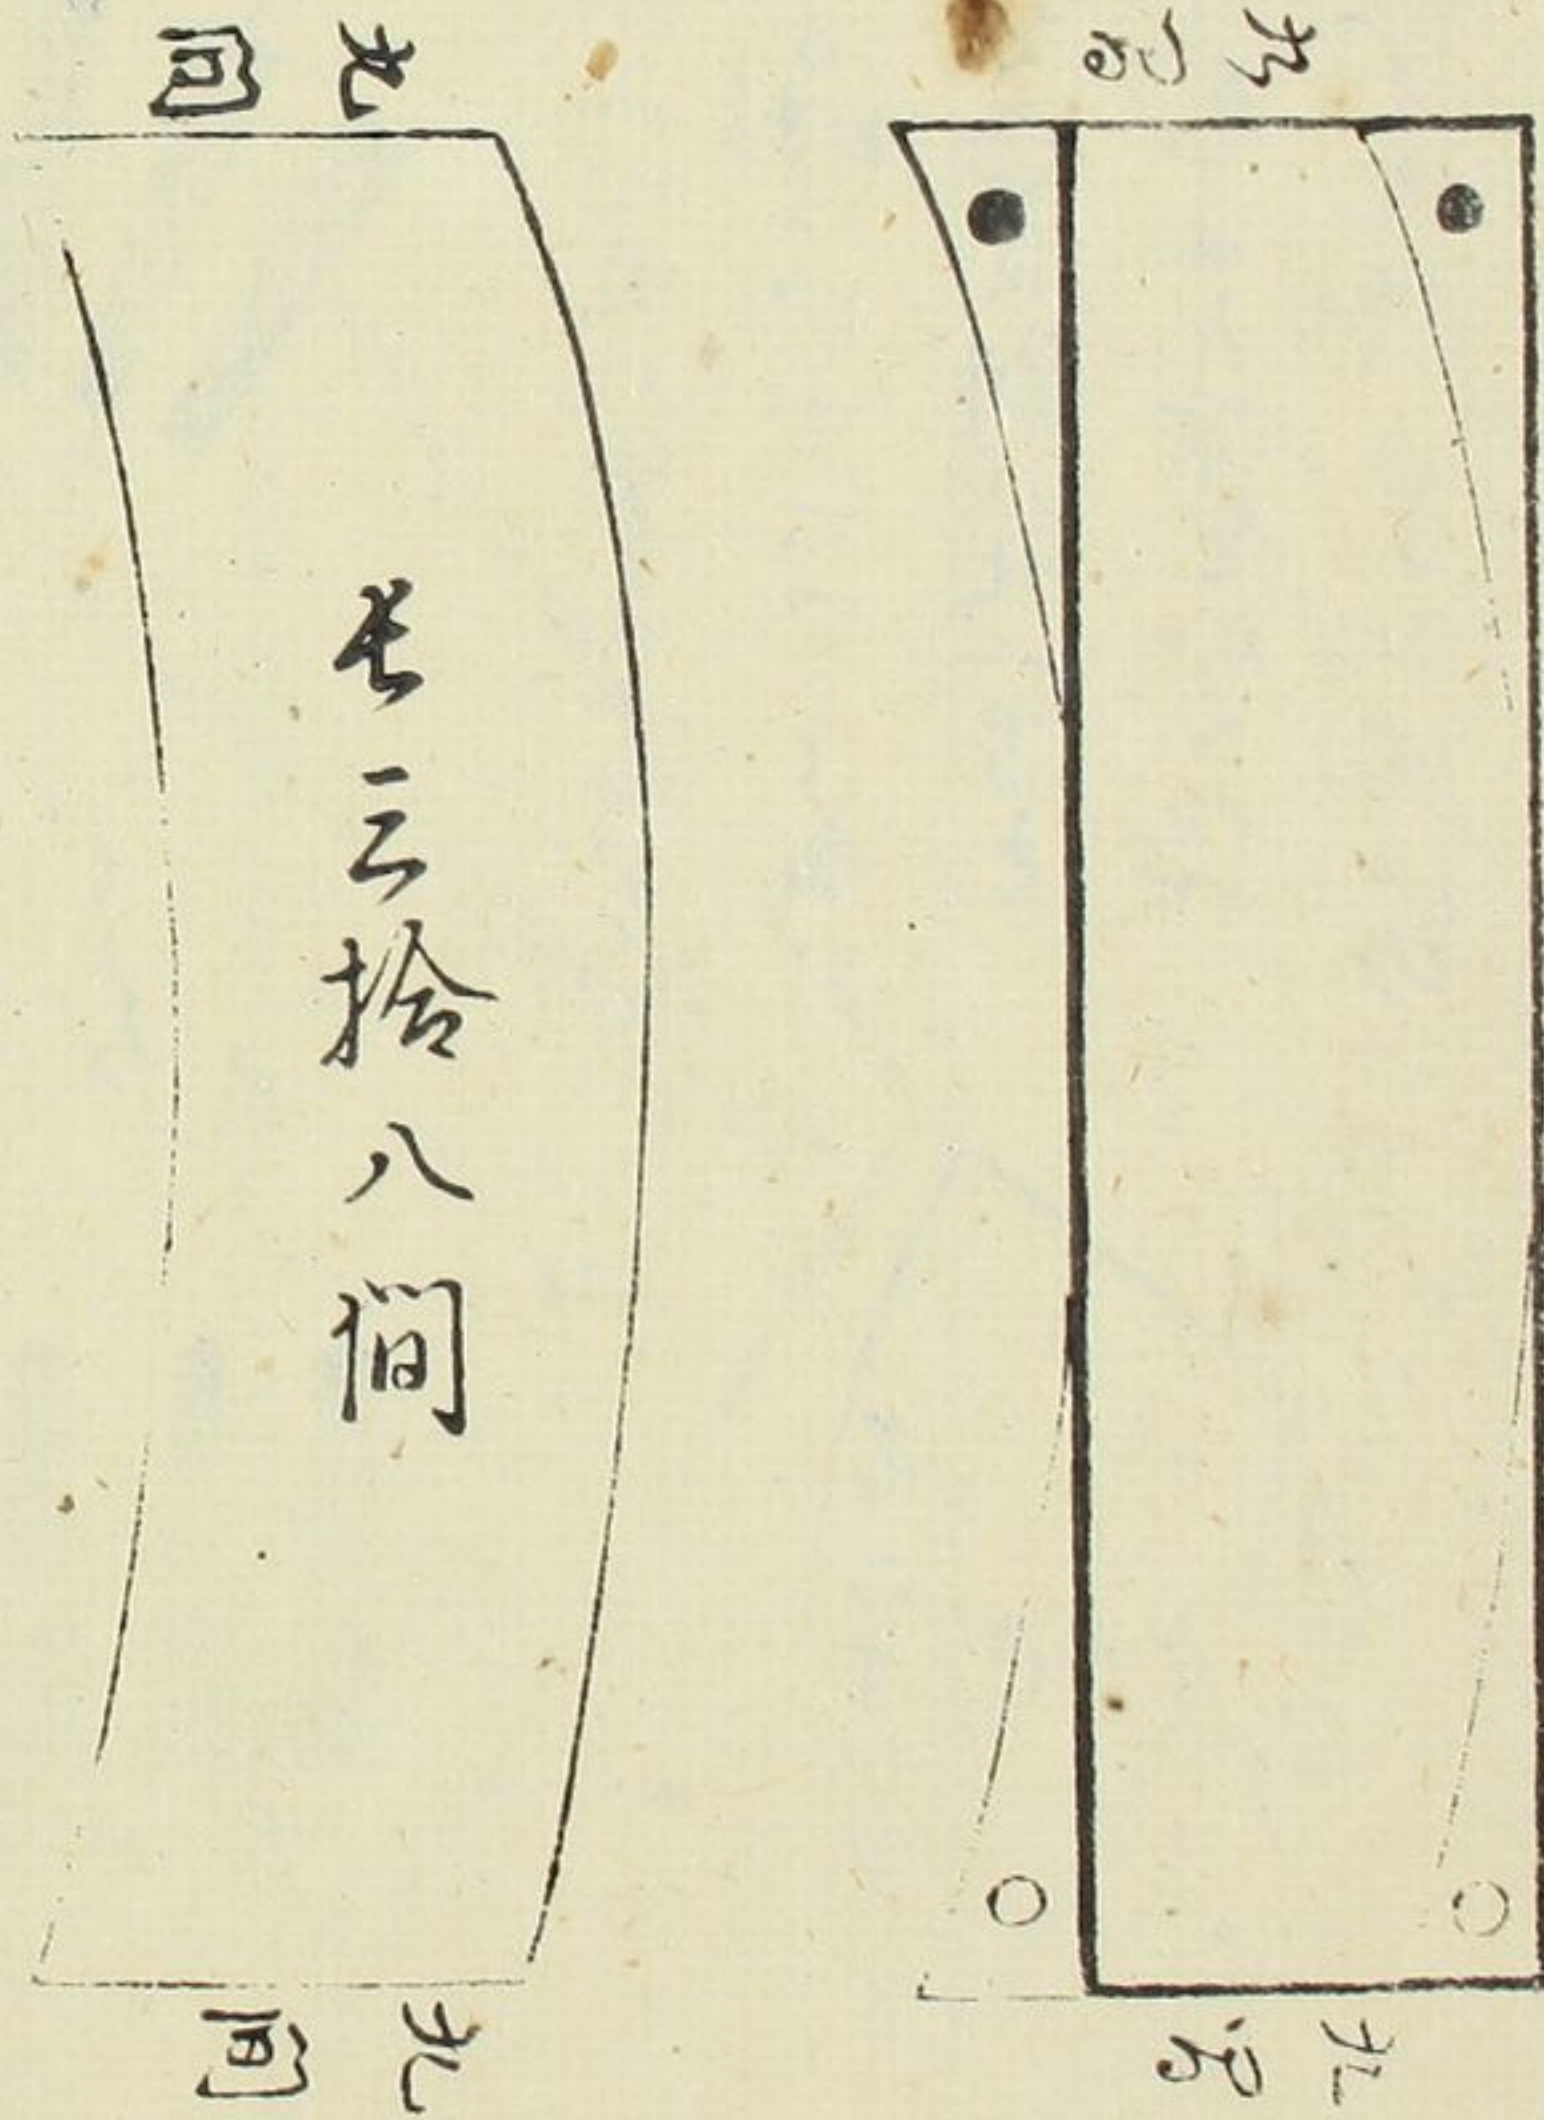 九間
九間
九間
長三拾八間
九間